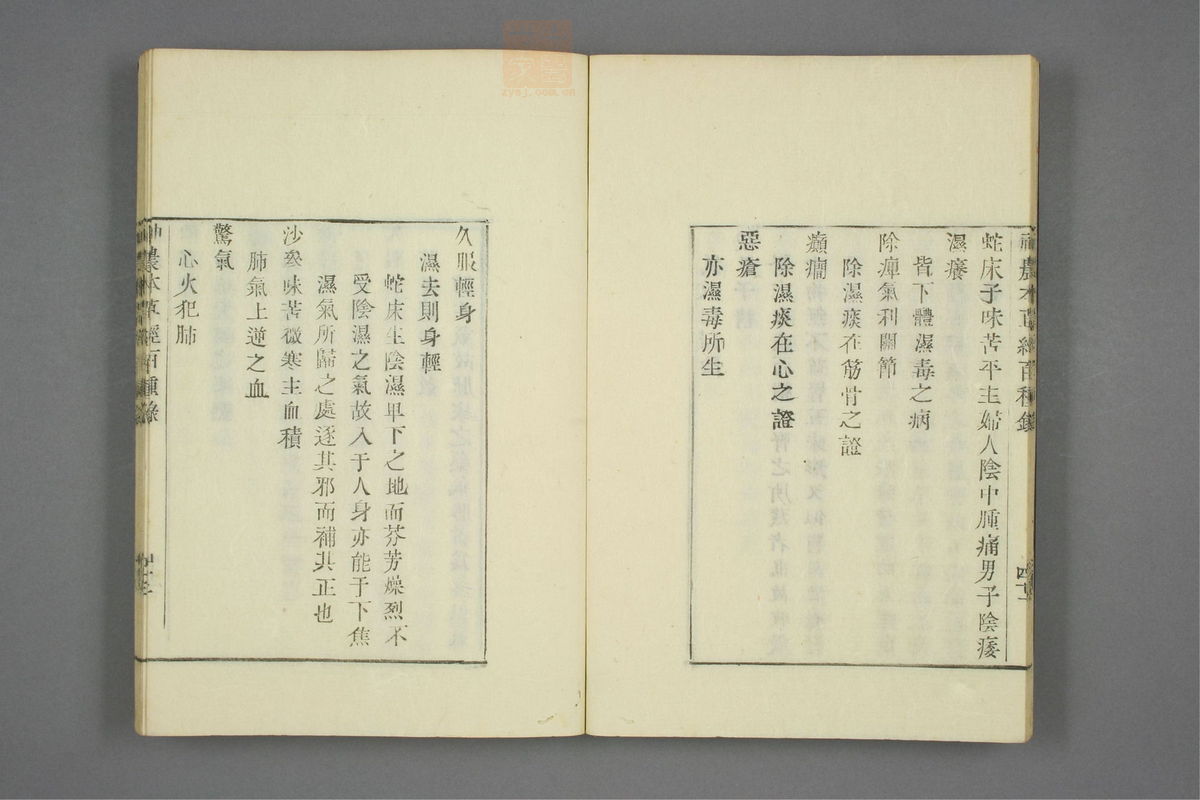 神農本草經百種錄
四十二
蛇床子味苦平主婦人陰中腫痛男子陰痿
濕癢
皆下體濕毒之病
除痺氣利關節
除濕痰在筋骨之證
癲癇
除濕痰在心之證
惡瘡
亦濕毒所生
久服輕身
濕去則身輕
蛇床生陰濕卑下之地而芬芳燥烈不
受陰濕之氣故入于人身亦能于下焦
濕氣所歸之處逐其邪而補其正也
沙參味苦微寒主血積
肺氣上逆之血
驚氣
心火犯肺
神農本草經百種錄
zysj.com.cn